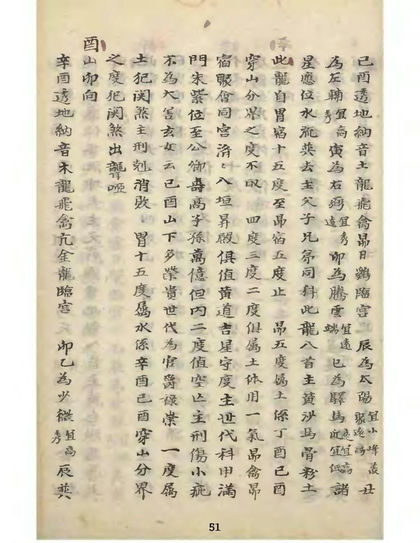 己酉透地納音土龍飛禽昴日鷄臨宮 辰為太陽 丑
為左輔 宜高秀 寅為右弼 卯為騰雲 巳為驛馬 諸
星應位水流英去主父子兄弟同科此龍八首主黃沙烏骨粉土
此龍自胃宿十五度至昴宿五度止 昴五度屬土係丁酉己酉
穿山分界之度不取 四度三度二度俱屬土体用一氣昴禽昴
宿聚會同宮 八垣昇殿俱值黃道吉星守度主世代科甲滿
門朱紫位至公卿壽高子孫萬億但內二度值空亡主刑傷小疵
不為大害 云己酉山下多榮貴世代為官爵祿崇 一度屬
土犯関煞主刑剋消敗 胃十五度屬水係辛酉己酉穿山分界
之度犯関煞出聾啞
酉山卯向
辛酉透地納音木龍飛禽亢金龍臨宮 卯乙為少微 宜高秀 辰巽
51